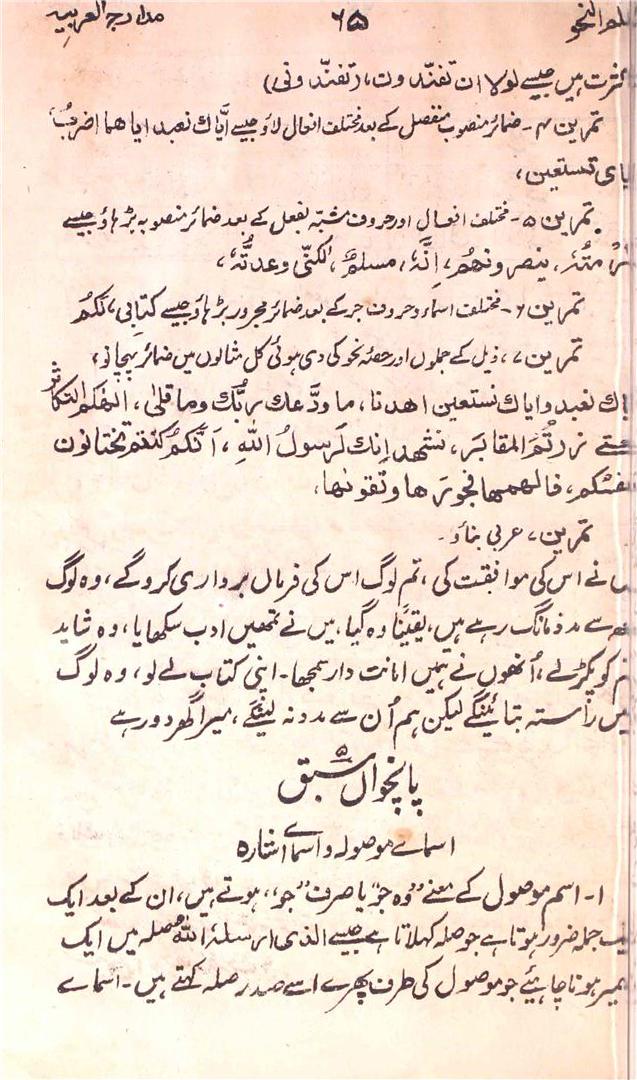 علم النحو ۶۵ مدارج العربیہ
کثرت ہیں جیسے لولا ان تفنّدون، (تفنّدونی)
تمرین ۴۔ ضمائر منصوب منفصل کے بعد مختلف افعال لاؤ جیسے ایّاك نعبد ایاهما اضربُ،
یای تستعین،
تمرین ۵۔ مختلف افعال اور حروف مشبہ بفعل کے بعد ضمائر منصوبہ بڑہاؤ جیسے
ینصرونهُم، اِنَّهٗ، مسلمٌ، لکنّی وعدتُهٗ،
تمرین ۶۔ مختلف اسماء و حروف جر کے بعد ضمائر مجرور بڑہاؤ جیسے کتابِی، لَکُم
تمرین ۷، ذیل کے جملوں اور حصّہ نحو کی دی ہوئی کل مثالوں میں ضمائر پہچانو،
ایاك نعبد وایاك نستعین اهدنا، ما ودَّعك ربُّك وما قلیٰ، الهٰکم التکاثر
حتے زرتُم المقابَر، نشهد اِنك لَرسولُ اللهِ، اَنَّکمُ کنتم تختانون
انفسَکم، فالهمها فجورَها وتقوٰىها،
تمرین ۷ عربی بناؤ۔
اس نے اس کی موافقت کی، تم لوگ اس کی فرمال برداری کروگے، وہ لوگ
سے مدد مانگ رہے ہیں، یقینًا وہ گیا، میں نے تمھیں ادب سکھایا، وہ شاید
تم کو پکڑلے، اُنھوں نے ہمیں امانت دار سمجھا۔ اپنی کتاب لے لو، وہ لوگ
ہمیں راستہ بتائینگے لیکن ہم اُن سے مدد نہ لینگے، میرا گھر دور ہے
پانچواں ۵ سبق
اسمائے موصولہ و اسمائے اشارہ
۱۔ اسم موصول کے معنے ”وہ جو“ یا صرف ”جو“، ہوتے ہیں، ان کے بعد ایک
جملہ ضرور ہوتا ہے جو صلہ کہلاتا ہے جیسے الذی ارسلهٗ اللهُ صلہ میں ایک
ضمیر ہونا چاہیئے جو موصول کی طرف پھرے اسے صدر صلہ کہتے ہیں۔ اسمائے